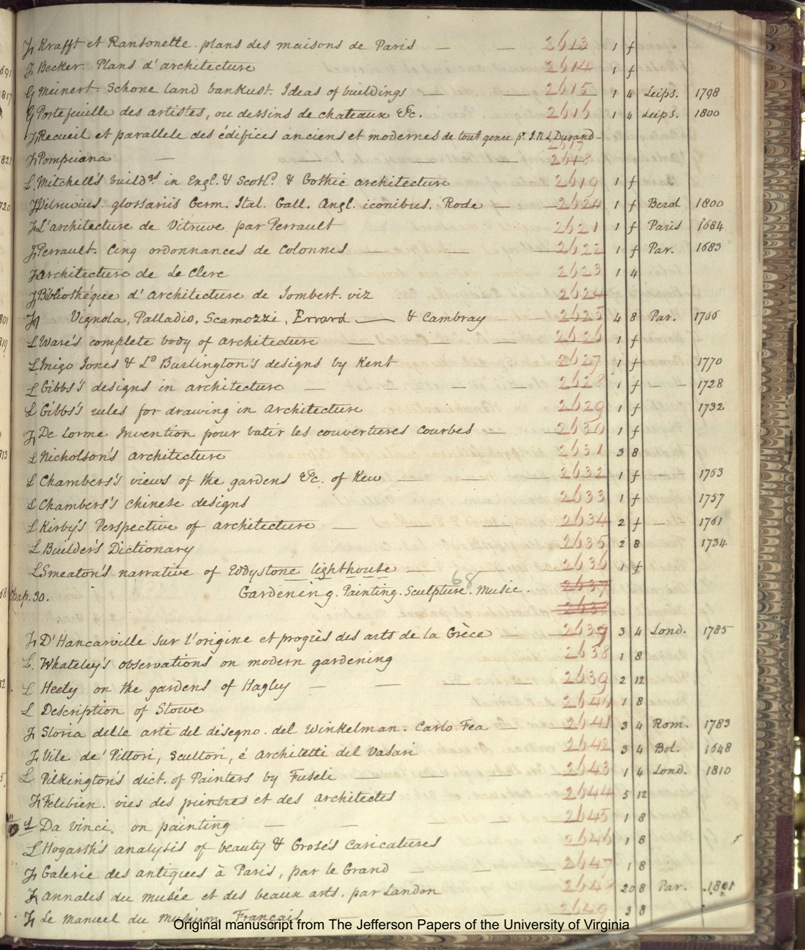 Fr Krafft et Ransonette. plans des maisons de Paris — — 2613 1 f
Fr Becker. Plans d'architecture 2614 1 f
G Meinert. Schone land baukust. Ideas of buildings 2615 1 4 Leips. 1798
G Portefeuille des artistes, ou dessins de chateaux &c. 2616 1 4 Leips. 1800
Fr Recueil et parallele des édifices anciens et modernes de tout genre pr. J.N.L. Durand - 2617
Fr Pompeiana — — 2618
L Mitchell's build.gs in Engl. & Scotld. & Gothic architecture 2619 1 f
Fr Vitruvius. glossariis Germ. Ital. Gall. Angl. iconibus. Rode — 2620 1 f Berol 1800
Fr L'architecture de Vitruve par Perrault 2621 1 f Paris 1684
Fr Perrault. Cinq ordonnances de Colonnes — 2622 1 f Par. 1683
Fr Architecture de Le Clerc 2623 1 4
Fr Bibliothéque d'Architecture de Jombert. viz 2624
Fr Vignola, Palladio, Scamozzi, Errard — & Cambray 2625 4 8 Par. 1766
L Ware's complete body of architecture — 2626 1 f
L Inigo Jones & Ld Burlington's designs by Kent 2627 1 f 1770
L Gibbs's designs in architecture — 2628 1 f 1728
L Gibbs's rules for drawing in Architecture 2629 1 f 1732
Fr De Lorme Invention pour batir les couvertures courbes — 2630 1 f
L Nicholson's architecture 2631 3 8
L Chambers's views of the gardens &c. of Kew — 2632 1 f 1763
L Chambers's chinese designs 2633 1 f 1757
L Kirby's Perspective of architecture — 2634 2 f 1761
L Builder's Dictionary 2635 2 8 1734
L Smeaton's narrative of Eddystone lighthouse 2636 1 f
68 2637
Chap. 30. Gardening. Painting. Sculpture. Music.
2638
Fr D'Hancarville sur l'origine et progrès des arts de la Grèce 2637 3 4 Lond. 1785
L Whateley's observations on modern gardening 2638 1 8
L Heely on the gardens of Hagley — 2639 2 12
L Description of Stowe 2640 1 8
Fr Storia delle arti del disegno. del Winkelman. Carlo Fea 2641 3 4 Rom. 1783
Fr Vite de' Pittori, Scultori, é Architetti del Vasari 2642 3 4 Bol. 1648
L Pilkington's dict. of Painters by Fuseli — 2643 1 4 Lond. 1810
Fr Felibien. vies des peintres et des architectes 2644 5 12
L Da vinci, on painting — 2645 1 8
L Hogarth's analysis of beauty & Grose's Caricatures 2646 1 8
Fr Galerie des antiques à Paris, par le Grand 2647 1 8
Fr Annales du musée et des beaux arts. par Landon 2648 20 8 Par. 1801
Fr Le manuel du museum Francais 2649 3 8
Original manuscript from The Jefferson Papers of the University of Virginia